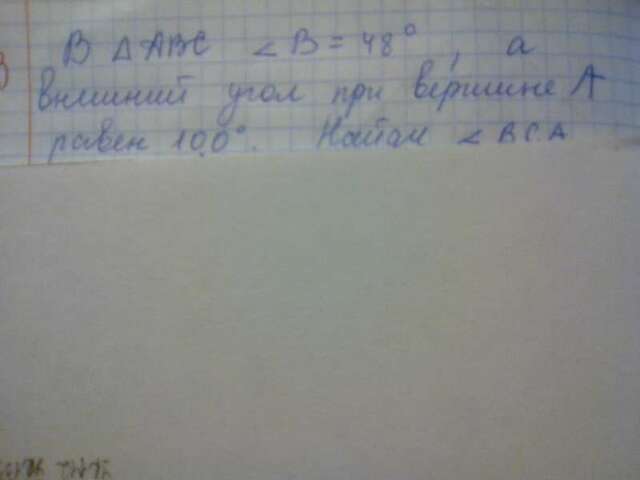 В △ АВС ∠ В = 48°, а
внешний угол при вершине А
равен 100°. Найти ∠ ВСА